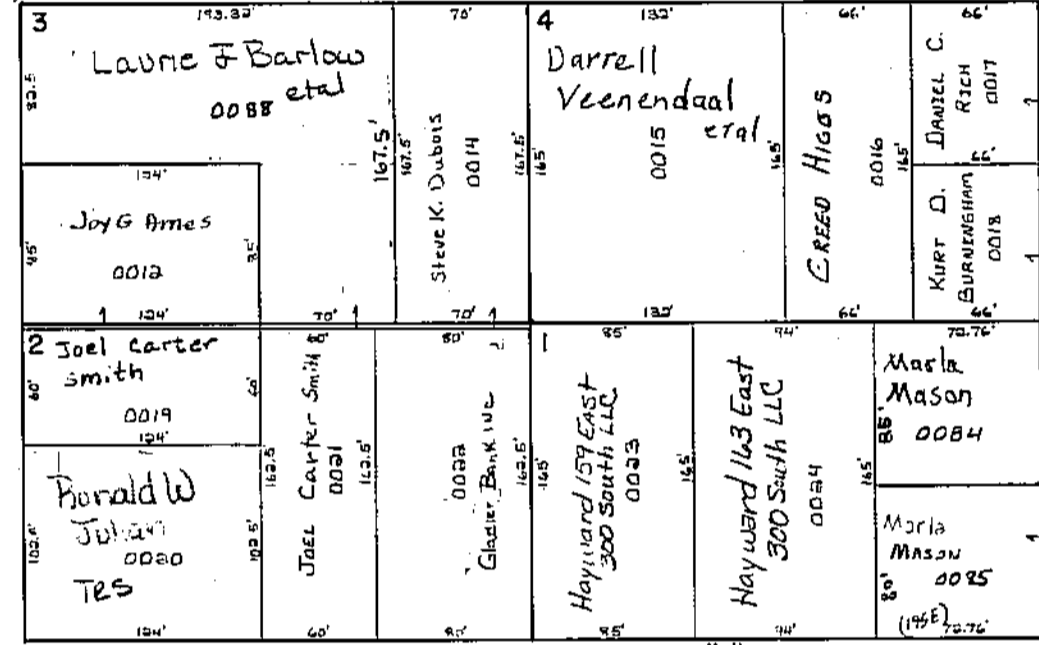 3
193.32'
82.5
Laurie F Barlow
etal
0088
167.5'
124'
Joy G Ames
0012
85'
85'
124'
70'
70'
167.5'
Steve K. Dubois
0014
167.5'
70'
4
132'
Darrell
Veenendaal
etal
0015
165'
165'
132'
66'
CREED HIGGS
0016
165'
66'
66'
DANIEL C.
RICH
0017
66'
KURT D.
BURNINGHAM
0018
66'
2
Joel Carter
Smith
60'
60'
0019
124'
Ronald W
Julian
0020
Tes
102.5'
102.5'
124'
60'
JOEL Carter Smith
0021
162.5'
162.5'
60'
80'
0022
Glacier Bank INC
162.5'
80'
1
85'
Hayward 159 EAST
300 South LLC
0023
165'
165'
85'
94'
Hayward 163 East
300 South LLC
0024
165'
94'
72.76'
Marla
Mason
85'
0084
Marla
MASON
0085
80'
(195E)
72.76'